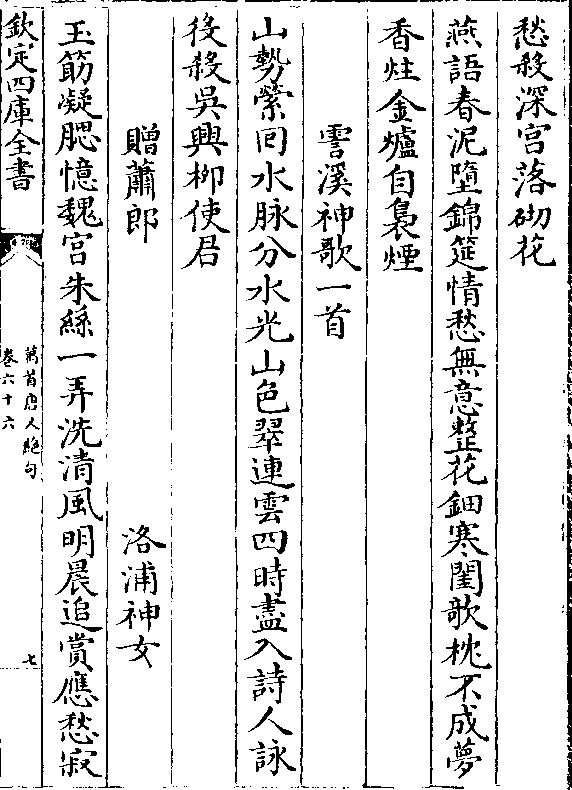 愁殺深宮落砌花
燕語春泥墮錦筵情愁無意整花鈿寒閨歌枕不成夢
香炷金爐自裊煙
霅溪神歌一首
山勢縈囘水脉分水光山色翠連雲四時盡入詩人詠
役殺吳興柳使君
贈蕭郎　洛浦神女
玉筯凝腮憶魏宮朱絲一弄洗清風明晨追賞應愁寂
欽定四庫全書
萬首唐人絶句
卷六十六
七